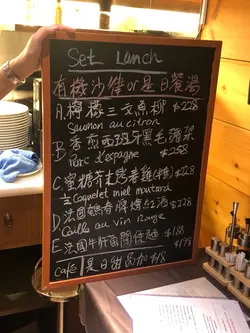 Set Lunch
有機沙律or是日餐湯
A.檸檬三文魚排 $228
Saumon au citron
B.香煎西班牙黑毛豬架 $258
Porc d'espagne
C.蜜糖芥末春雞(半隻) $228
½ coquelet miel moutard
D.法國鵪春脾燴紅酒 $228
Caille au vin rouge
E.法國牛肝菌闊條麵 $188
$198
Cafe 是日甜品加$48